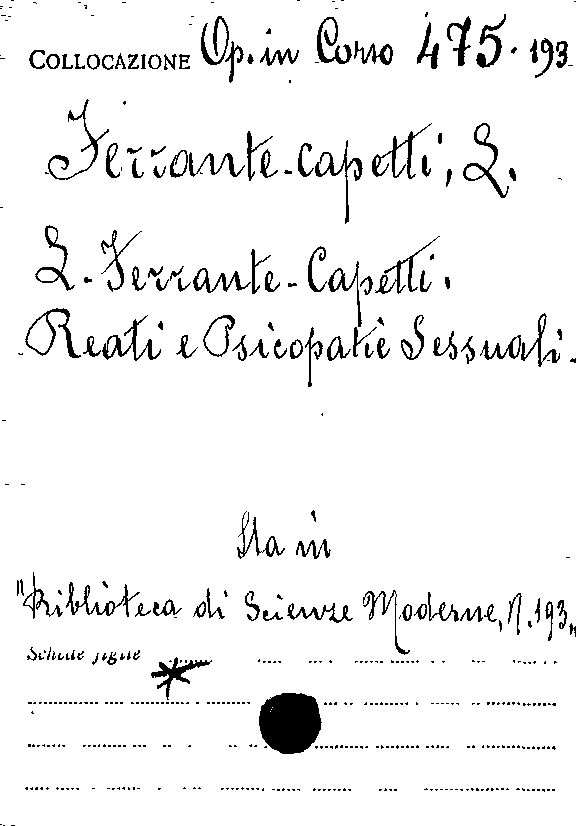 COLLOCAZIONE Op. in Corso 475.193
Ferrante-Capetti, L.
L. Ferrante-Capetti.
Reati e Psicopatie Sessuali.
Sta in
"Biblioteca di Scienze Moderne, N. 193"
Schede figlie